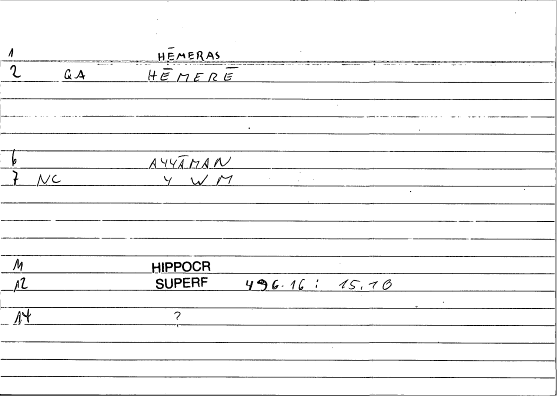 1 HĒMERAS
2 QA HĒMERĒ
6 AYYĀMAN
7 NC Y W M
11 HIPPOCR
12 SUPERF 496.16 : 15.10
14 ?